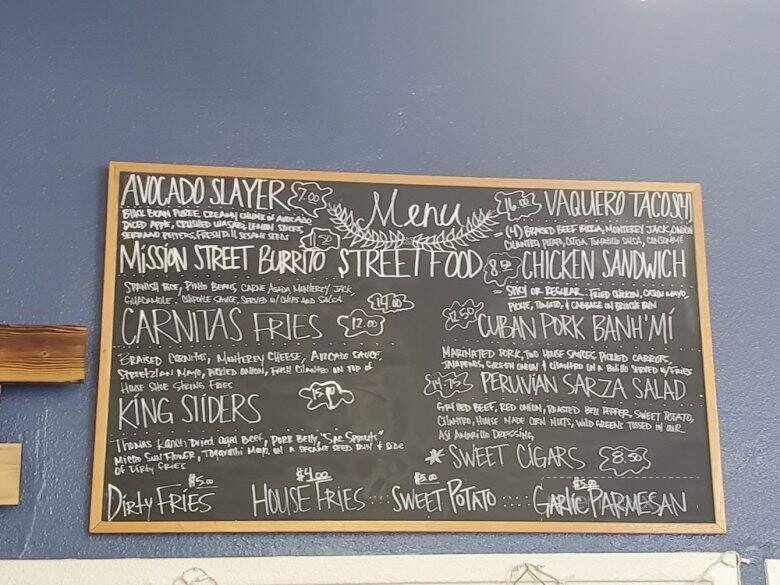 Menu
STREET FOOD
AVOCADO SLAYER 7.00
BLACK BEAN PUREE, CREAMY CHUNK OF AVOCADO
DICED APPLE, CRUSHED WASABI, LEMON JUICE,
SERRANO PEPPERS, FRESH DILL SESAME SEEDS
11.50
MISSION STREET BURRITO
SPANISH RICE, PINTO BEANS, CARNE ASADA, MONTEREY JACK,
GUACAMOLE, SERVED W/ CHIPS AND SALSA
14.00
CARNITAS FRIES 12.00
BRAISED CARNITAS, MONTEREY CHEESE, AVOCADO SAUCE,
MAYO, PICKLED ONION, FRESH CILANTRO ON TOP OF
HOUSE SHOE STRING FRIES
KING SLIDERS 15.00
THOMAS RANCH DRIED AGED BEEF, PORK BELLY,
MICRO SUN FLOWER, MAYO, ON A SESAME SEED BUN & SIDE
OF DIRTY FRIES
16.00 VAQUERO TACOS(4)
(4) BRAISED BEEF BIRRIA, MONTEREY JACK, ONION
CILANTRO, TOMATILLO SALSA, CONSOMMÉ
8.50 CHICKEN SANDWICH
- SPICY OR REGULAR: FRIED CHICKEN, CAJUN MAYO,
PICKLE, TOMATO, & CABBAGE ON BRIOCHE BUN
12.50 CUBAN PORK BANH'MÍ
MARINATED PORK, TWO HOUSE SAUCES, PICKLED CARROTS,
JALAPENOS, GREEN ONION & CILANTRO ON A BOLILLO SERVED W/FRIES
14.75 PERUVIAN SARZA SALAD
GRILLED BEEF, RED ONION, ROASTED BELL PEPPER, SWEET POTATO,
CILANTRO, HOUSE MADE CORN NUTS, WILD GREENS TOSSED IN OUR
AJI AMARILLO DRESSING
* SWEET CIGARS 8.50
$5.00 $4.00 $5.00 $5.00
DIRTY FRIES HOUSE FRIES SWEET POTATO GARLIC PARMESAN